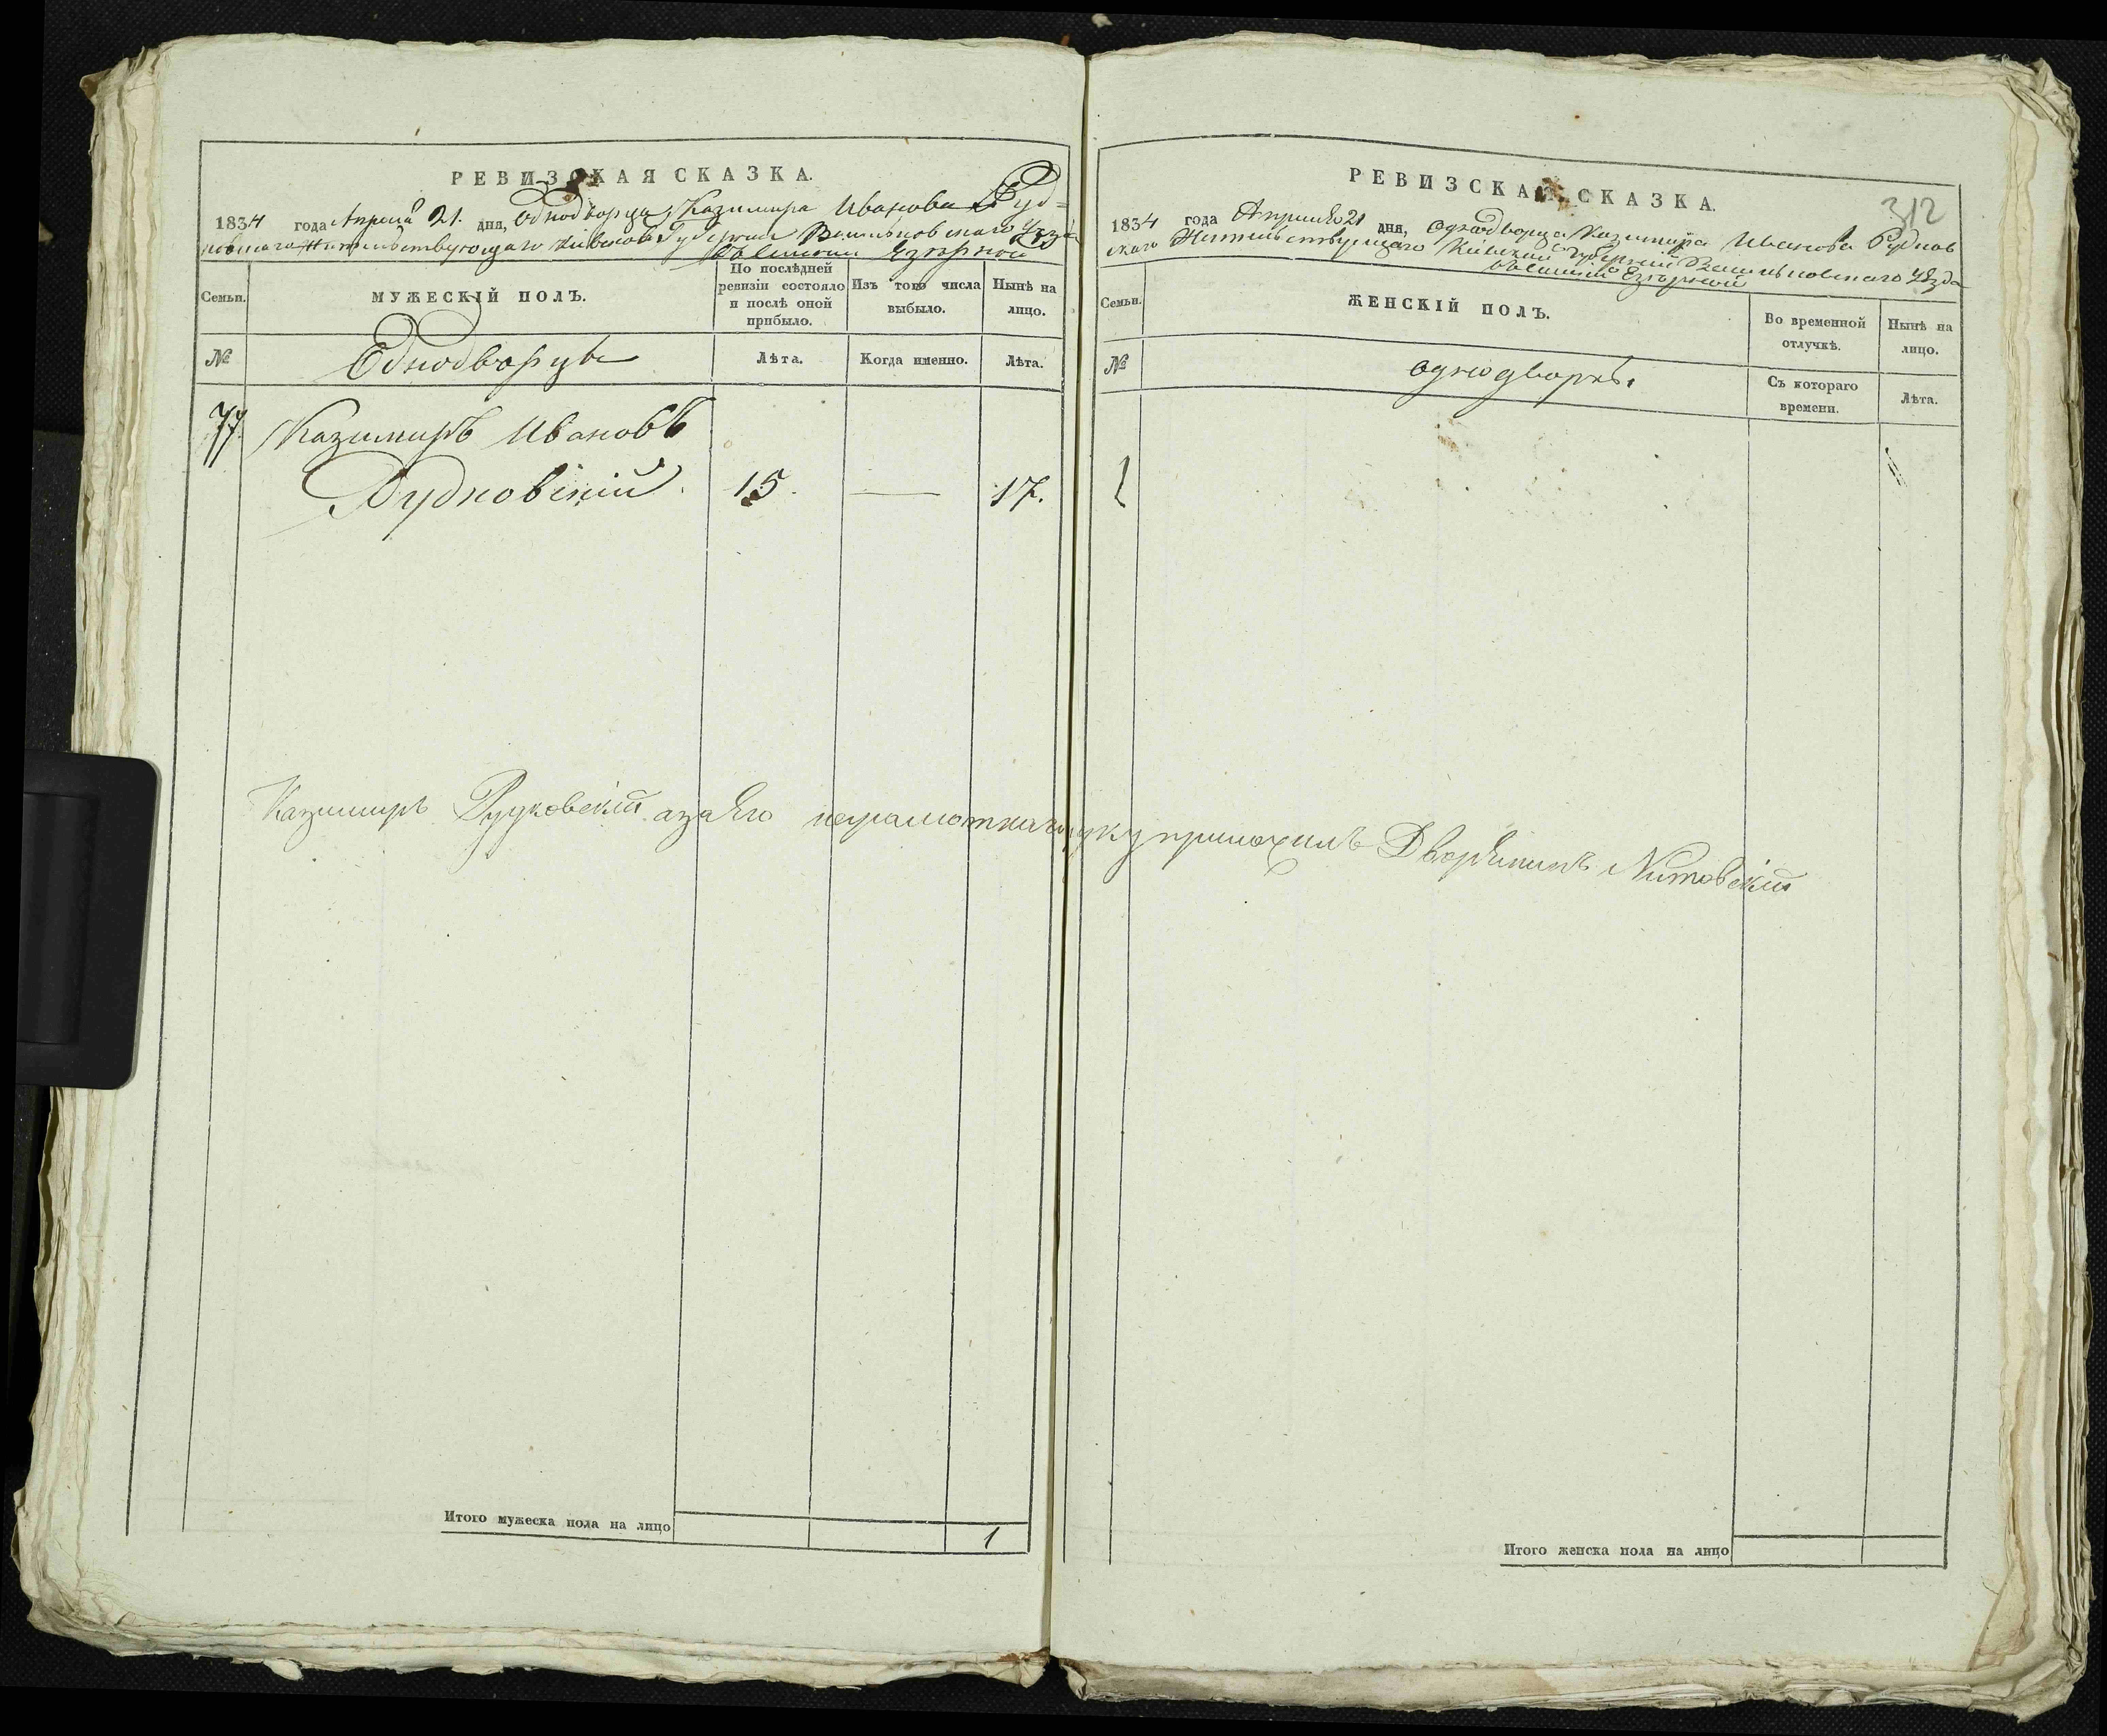 РЕВИЗСКАЯ СКАЗКА.
1834 года Апреля 21. дня, Однодворца Казимира Иванова Руд=
ковскаго Жительствующаго Губернии Васильковскаго уезда
Езерной
Семьи.
МУЖЕСКІЙ ПОЛЪ.
По послѣдней ревизіи состояло и послѣ оной прибыло.
Изъ того числа выбыло.
Нынѣ на лицо.
№
Однодворцы
Лѣта.
Когда именно.
Лѣта.
77.
Казимиръ Ивановъ
Рудковскій. 15. — 17.
Казимиръ Рудковскій а за его неграмотнаго руку приложилъ Дворянинъ
Итого мужеска пола на лицо 1
312
РЕВИЗСКАЯ СКАЗКА.
1834 года Апреля 21 дня, Однодворца Казимира Иванова Рудков
скаго Жительствующаго Киевской Губерний Васильковскаго уезда
в селении Езерной
Семьи.
ЖЕНСКІЙ ПОЛЪ.
Во временной отлучкѣ.
Нынѣ на лицо.
№
однодворки
Съ котораго времени.
Лѣта.
Итого женска пола на лицо